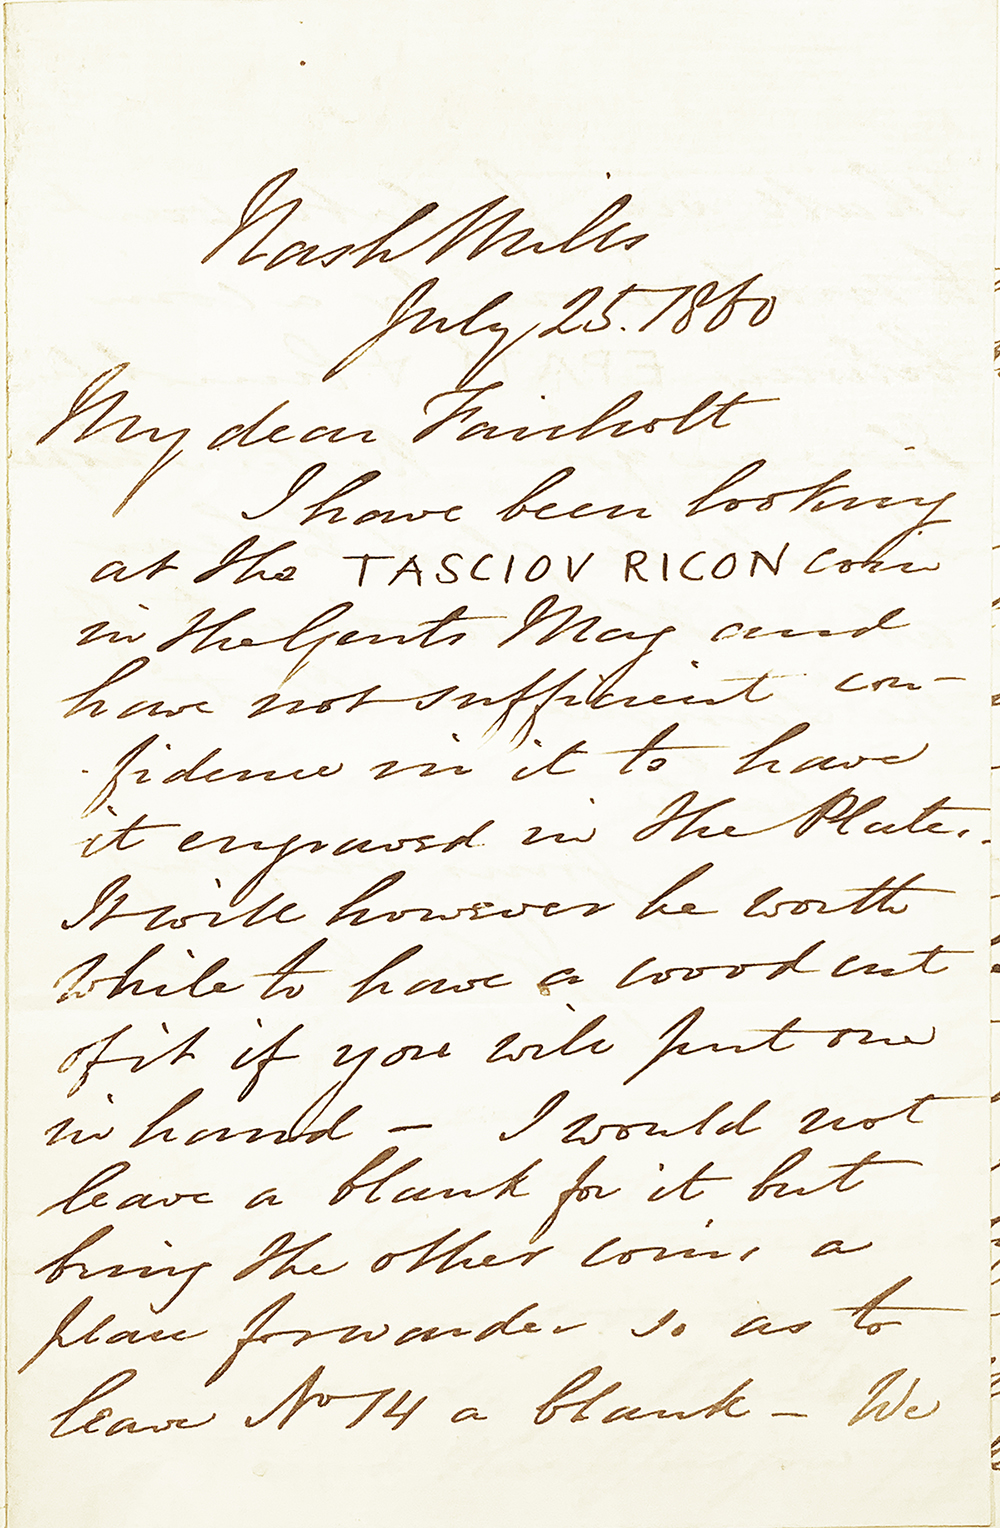 Nash Mills
July 25. 1860
My dear Fairholt
I have been looking
at the TASCIOV RICON coin
in the Gents Mag and
have not sufficient con-
fidence in it to have
it engraved in the Plate.
It will however be worth
while to have a wood cut
of it if you will put one
in hand – I would not
leave a blank for it but
bring the other coins a
place forwarder so as to
leave No 14 a blank – We